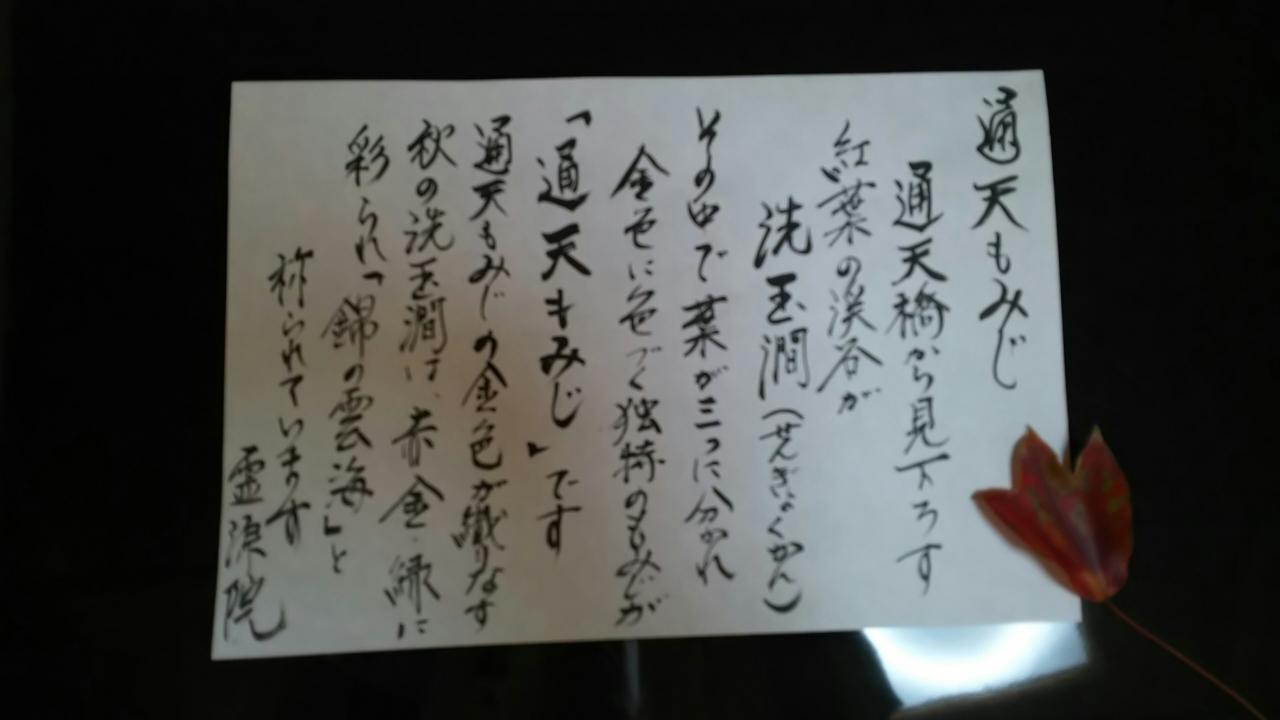 通天もみじ
通天橋から見下ろす
紅葉の渓谷が
洗玉澗(せんぎょくかん)
その中で葉が三つに分かれ
金色に色づく独特のもみじが
「通天もみじ」です
通天もみじの金色が織りなす
秋の洗玉澗は、赤・金・緑に
彩られ「錦の雲海」と
称られています
霊源院